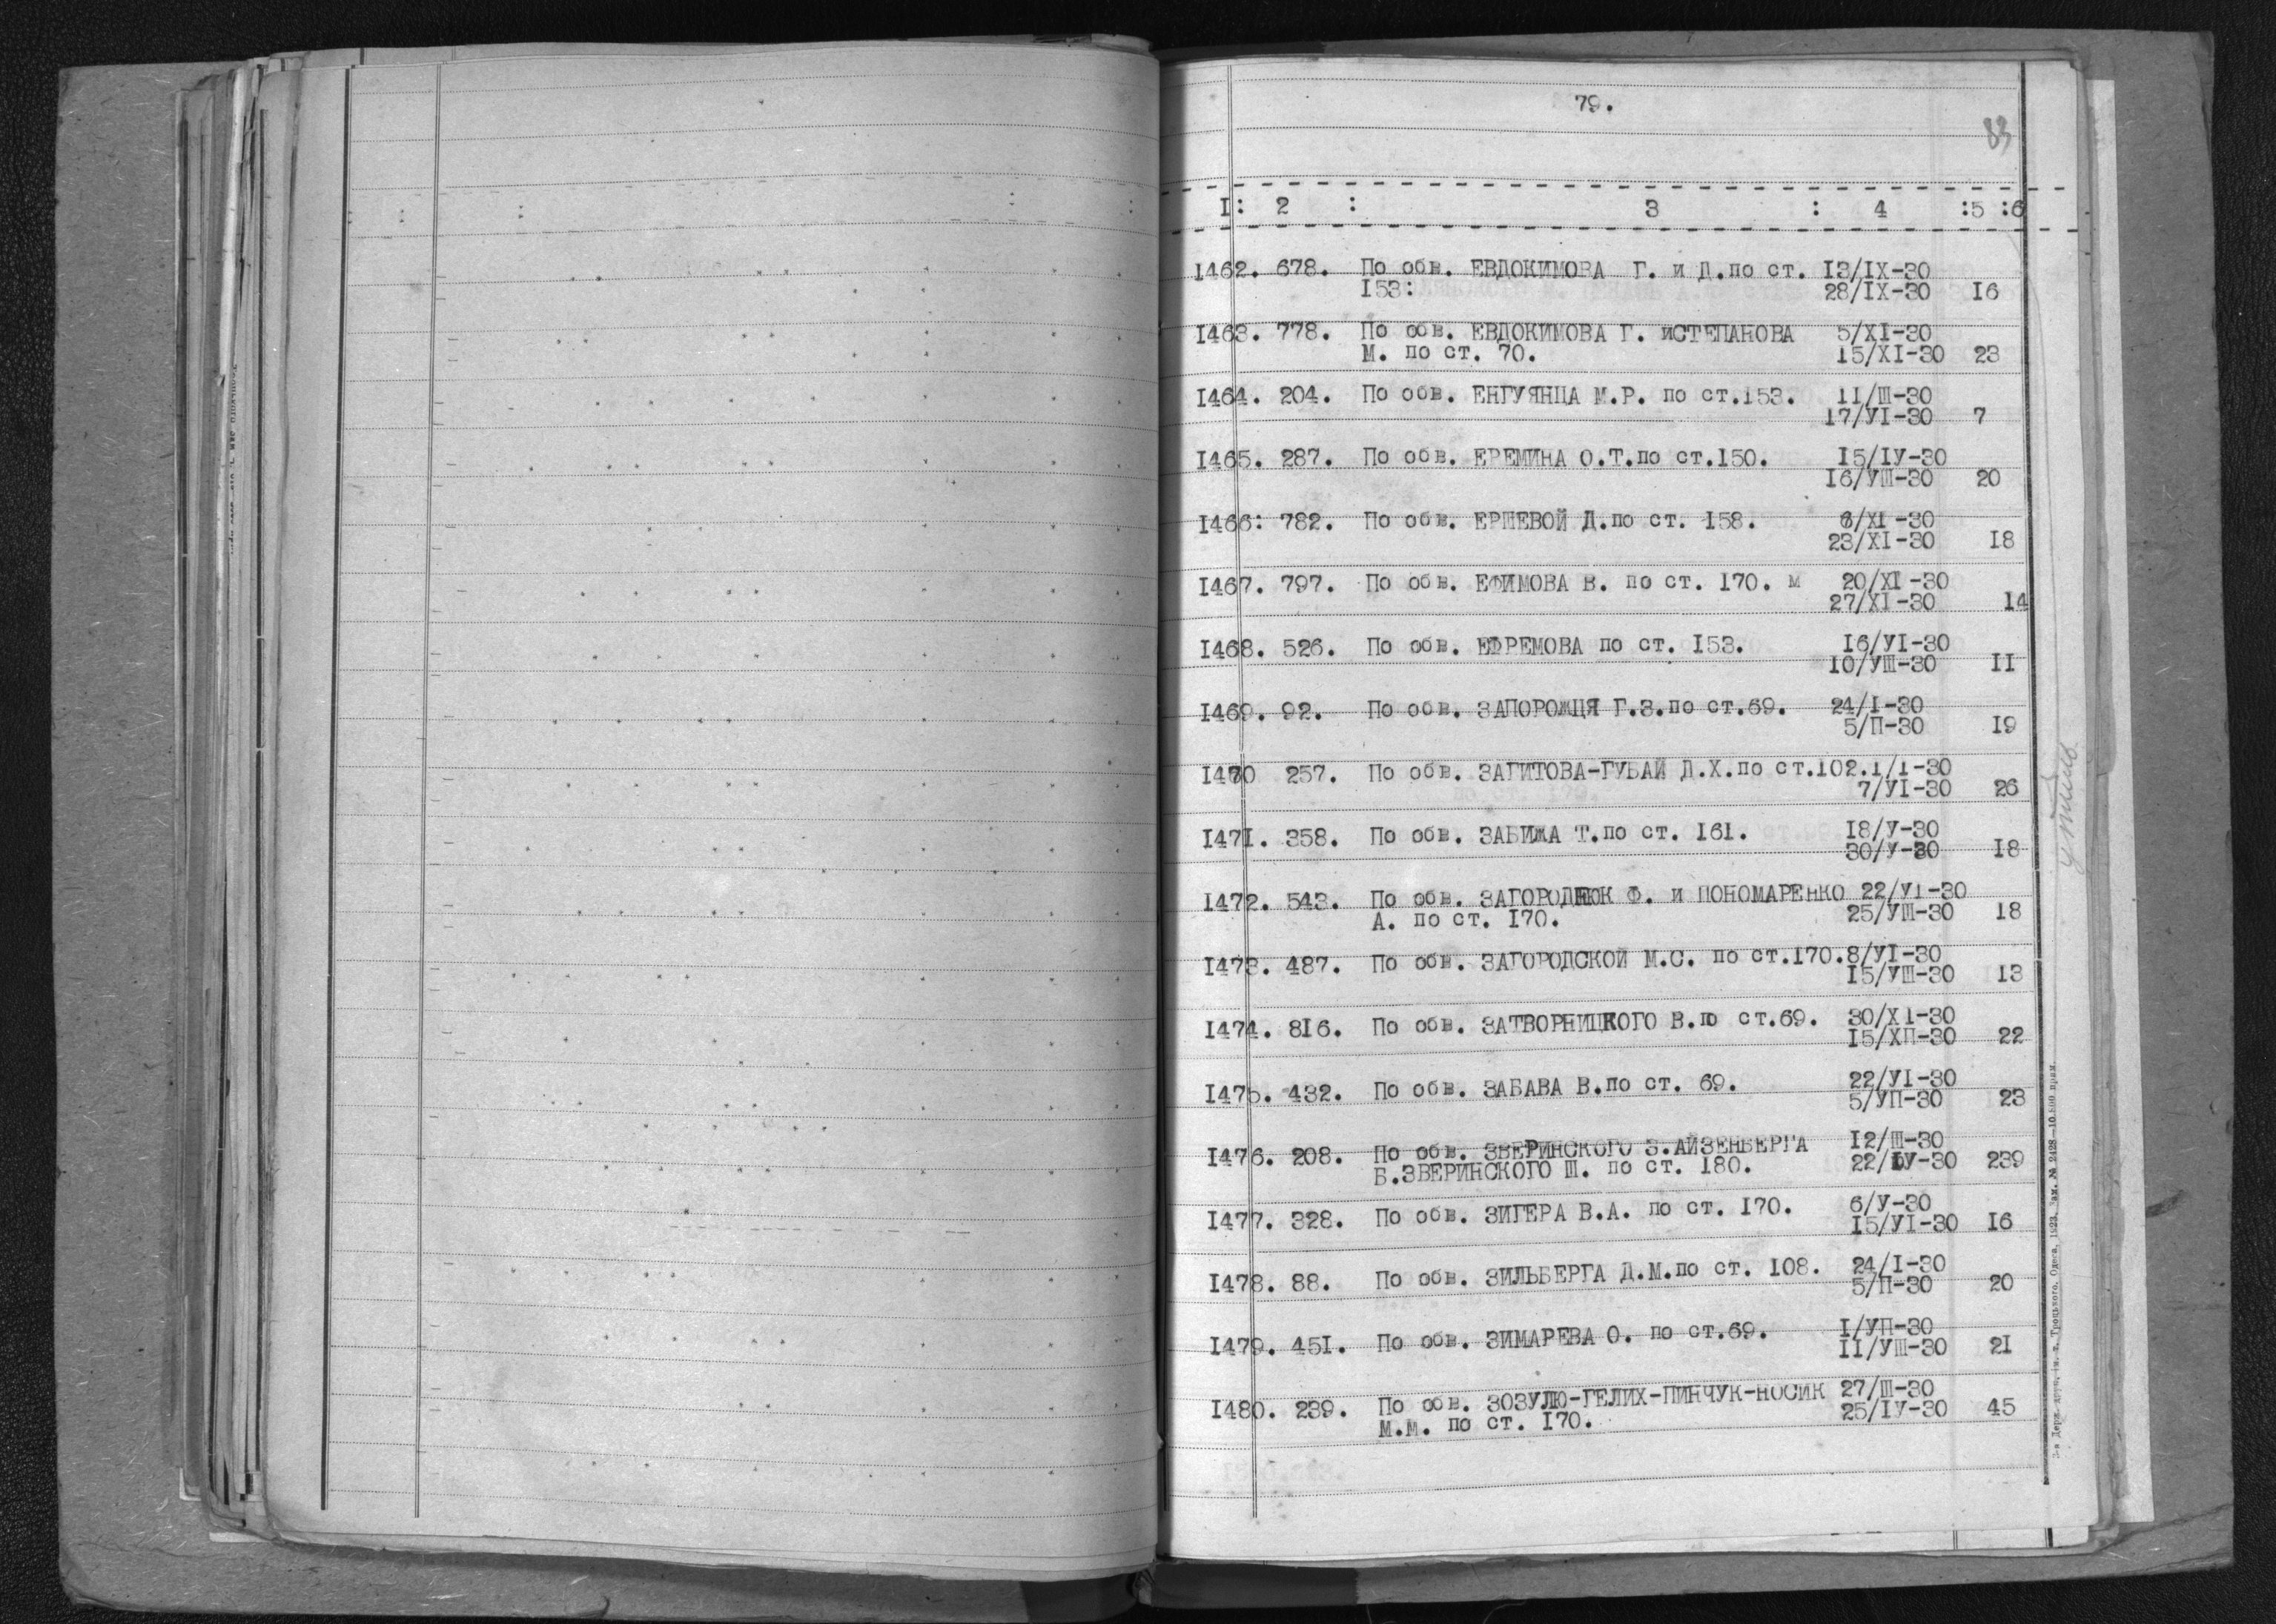 79.
83
1: 2 : 3 : 4 :5 :6
1462. 678. По обв. ЕВДОКИМОВА Г. и Д.по ст. 13/IX-30
153: 28/IX-30 16
1463. 778. По обв. ЕВДОКИМОВА Г. иСТЕПАНОВА 5/XI-30
М. по ст. 70. 15/XI-30 23
1464. 204. По обв. ЕНГУЯНЦА М.Р. по ст.153. 11/Ш-30
17/УI-30 7
1465. 287. По обв. ЕРЕМИНА О.Т.по ст.150. 15/IУ-30
16/УШ-30 20
1466: 782. По обв. ЕРШЕВОЙ Д.по ст. 158. 6/XI-30
23/XI-30 18
1467. 797. По обв. ЕФИМОВА В. по ст. 170. м 20/XI-30
27/XI-30 14
1468. 526. По обв. ЕФРЕМОВА по ст. 153. 16/УI-30
10/УШ-30 11
1469. 92. По обв. ЗАПОРОЖЦЯ Г.З.по ст.69. 24/I-30
5/П-30 19
1470 257. По обв. ЗАГИТОВА-ГУБАЙ Д.Х.по ст.102.1/1-30
7/УI-30 26
1471. 358. По обв. ЗАБИЖА Т.по ст. 161. 18/У-30
30/У-30 18
1472. 543. По обв. ЗАГОРОДНЮК Ф. и ПОНОМАРЕНКО 22/УI-30
А. по ст. 170. 25/УШ-30 18
1473. 487. По обв. ЗАГОРОДСКОЙ М.С. по ст.170.8/УI-30
15/УШ-30 13
1474. 816. По обв. ЗАТВОРНИЦКОГО В.по ст.69. 30/XI-30
15/ХП-30 22
1475. 432. По обв. ЗАБАВА В.по ст. 69. 22/УI-30
5/УП-30 23
1476. 208. По обв. ЗВЕРИНСКОГО З.АЙЗЕНБЕРГА 12/Ш-30
Б.ЗВЕРИНСКОГО Ш. по ст. 180. 22/IУ-30 239
1477. 328. По обв. ЗИГЕРА В.А. по ст. 170. 6/У-30
15/УI-30 16
1478. 88. По обв. ЗИЛЬБЕРГА Д.М.по ст. 108. 24/I-30
5/П-30 20
1479. 451. По обв. ЗИМАРЕВА О. по ст.69. 1/УП-30
11/УШ-30 21
1480. 239. По обв. ЗОЗУЛЮ-ГЕЛИХ-ПИНЧУК-НОСИК 27/Ш-30
М.М. по ст. 170. 25/IУ-30 45